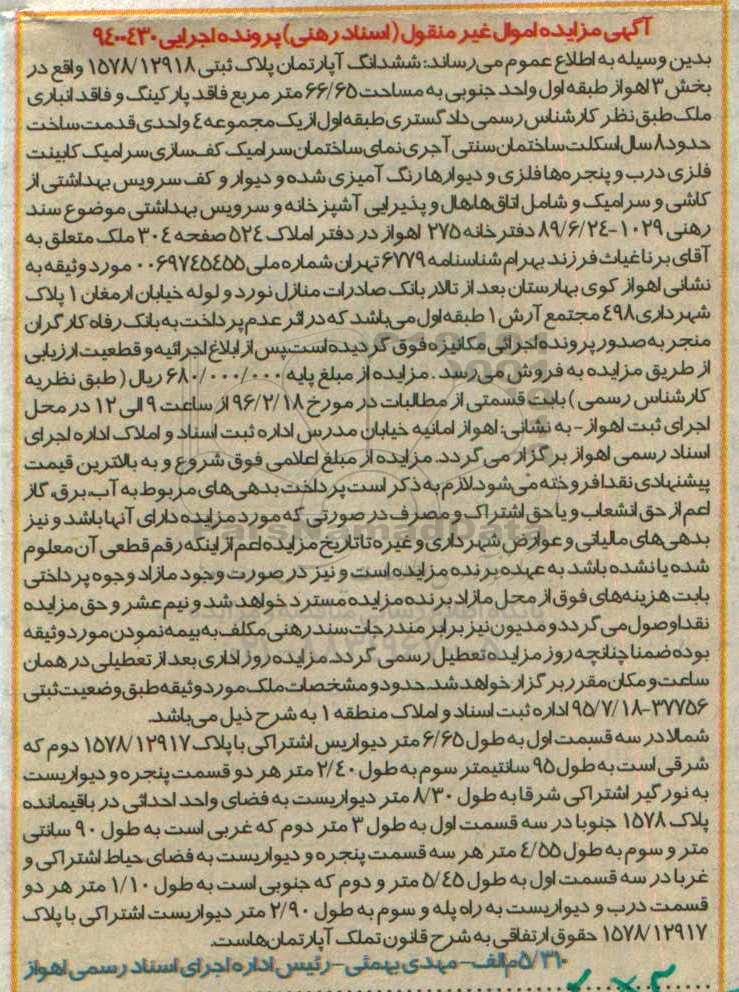 آگهی مزایده اموال غیر منقول (اسناد رهنی) پرونده اجرایی ۹۴۰۰۴۳۰
بدین وسیله به اطلاع عموم می‌رساند: ششدانگ آپارتمان پلاک ثبتی ۱۵۷۸/۱۲۹۱۸ واقع در
بخش ۳ اهواز طبقه اول واحد جنوبی به مساحت ۶۶/۶۵ متر مربع فاقد پارکینگ و فاقد انباری
ملک طبق نظر کارشناس رسمی دادگستری طبقه اول از یک مجموعه ۴ واحدی قدمت ساخت
حدود ۸ سال اسکلت ساختمان سنتی آجری نمای ساختمان سرامیک کف سازی سرامیک کابینت
فلزی درب و پنجره‌ها فلزی و دیوارها رنگ آمیزی شده و دیوار و کف سرویس بهداشتی از
کاشی و سرامیک و شامل اتاق‌ها هال و پذیرایی آشپزخانه و سرویس بهداشتی موضوع سند
رهنی ۱۰۲۹-۸۹/۶/۲۴ دفترخانه ۲۷۵ اهواز در دفتر املاک ۵۲۴ صفحه ۳۰۴ ملک متعلق به
آقای برنا غیاث فرزند بهرام شناسنامه ۶۷۷۹ تهران شماره ملی ۰۰۶۹۷۴۵۴۵۵ مورد وثیقه به
نشانی اهواز کوی بهارستان بعد از تالار بانک صادرات منازل نورد و لوله خیابان ارمغان ۱ پلاک
شهرداری ۴۹۸ مجتمع آرش ۱ طبقه اول می‌باشد که در اثر عدم پرداخت به بانک رفاه کارگران
منجر به صدور پرونده اجرائی مکانیزه فوق گردیده است.پس از ابلاغ اجرائیه و قطعیت ارزیابی
از طریق مزایده به فروش می‌رسد . مزایده از مبلغ پایه ۶۸۰/۰۰۰/۰۰۰ ریال ( طبق نظریه
کارشناس رسمی ) بابت قسمتی از مطالبات در مورخ ۹۶/۲/۱۸ از ساعت ۹ الی ۱۲ در محل
اجرای ثبت اهواز - به نشانی: اهواز امانیه خیابان مدرس اداره ثبت اسناد و املاک اداره اجرای
اسناد رسمی اهواز برگزار می‌گردد. مزایده از مبلغ اعلامی فوق شروع و به بالاترین قیمت
پیشنهادی نقدا فروخته می‌شود.لازم به ذکر است پرداخت بدهی‌های مربوط به آب، برق، گاز
اعم از حق انشعاب و یا حق اشتراک و مصرف در صورتی که مورد مزایده دارای آنها باشد و نیز
بدهی‌های مالیاتی و عوارض شهرداری و غیره تا تاریخ مزایده اعم از اینکه رقم قطعی آن معلوم
شده یا نشده باشد به عهده برنده مزایده است و نیز در صورت وجود مازاد وجوه پرداختی
بابت هزینه‌های فوق از محل مازاد برنده مزایده مسترد خواهد شد و نیم عشر و حق مزایده
نقدا وصول می‌گردد و مدیون نیز برابر مندرجات سند رهنی مکلف به بیمه نمودن مورد وثیقه
بوده ضمنا چنانچه روز مزایده تعطیل رسمی گردد. مزایده روز اداری بعد از تعطیلی در همان
ساعت و مکان مقرر برگزار خواهد شد. حدود و مشخصات ملک مورد وثیقه طبق وضعیت ثبتی
۳۷۷۵۶-۹۵/۷/۱۸ اداره ثبت اسناد و املاک منطقه ۱ به شرح ذیل می‌باشد.
شمالا در سه قسمت اول به طول ۶/۶۵ متر دیواریس اشتراکی با پلاک ۱۵۷۸/۱۲۹۱۷ دوم که
شرقی است به طول ۹۵ سانتیمتر سوم به طول ۲/۴۰ متر هر دو قسمت پنجره و دیواریست
به نورگیر اشتراکی شرقا به طول ۸/۳۰ متر دیواریست به فضای واحد احداثی در باقیمانده
پلاک ۱۵۷۸ جنوبا در سه قسمت اول به طول ۳ متر دوم که غربی است به طول ۹۰ سانتی
متر و سوم به طول ۴/۵۵ متر هر سه قسمت پنجره و دیواریست به فضای حیاط اشتراکی و
غربا در سه قسمت اول به طول ۵/۴۵ متر و دوم که جنوبی است به طول ۱/۱۰ متر هر دو
قسمت درب و دیواریست به راه پله و سوم به طول ۲/۹۰ متر دیواریست اشتراکی با پلاک
۱۵۷۸/۱۲۹۱۷ حقوق ارتفاقی به شرح قانون تملک آپارتمان‌هاست.
۵/۳۱۰م‌الف- مهدی بهمئی - رئیس اداره اجرای اسناد رسمی اهواز